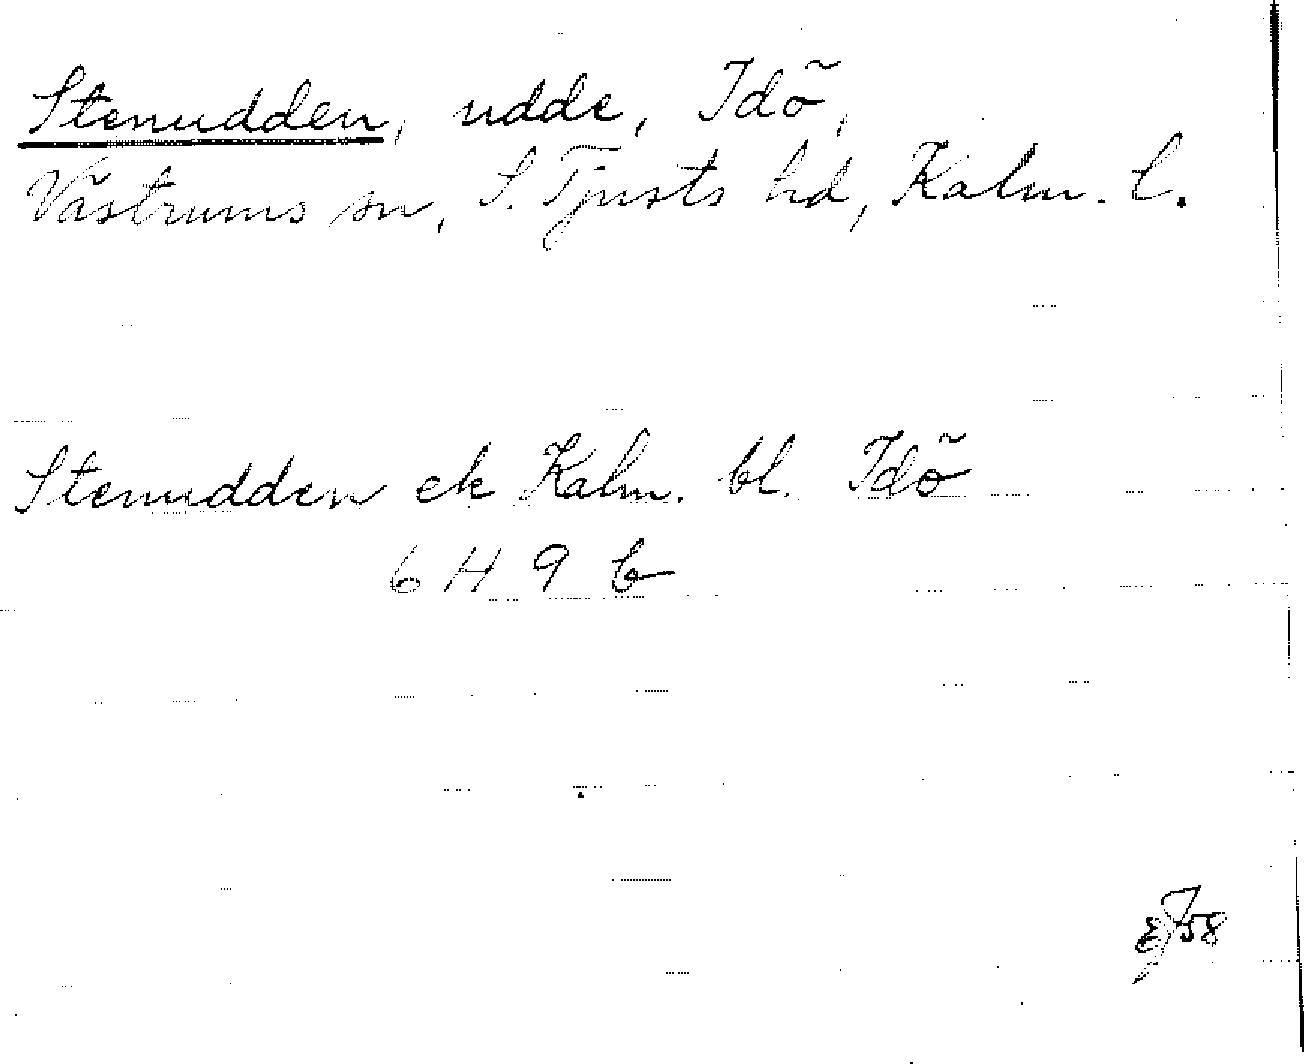 Stenudden, udde, Idö,
Västrums sn, S. Tjusts hd, Kalm. l.
Stenudden ek Kalm. bl. Idö
6 H 9 b
58